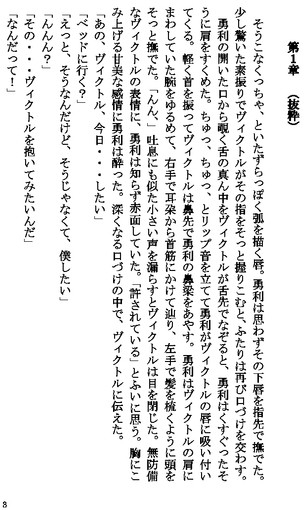 第1章 （抜粋）
そうこなくっちゃ、といたずらっぽく弧を描く唇。勇利は思わずその下唇を指先で撫でた。
少し驚いた素振りでヴィクトルがその指をそっと握りこむと、ふたりは再び口づけを交わす。
勇利の開いた口から覗く舌の真ん中をヴィクトルが舌先でなぞると、勇利はくすぐったそ
うに肩をすくめた。ちゅっ、ちゅっ、とリップ音を立てて勇利がヴィクトルの唇に吸い付い
てくる。軽く首を振ってヴィクトルは鼻先で勇利の鼻梁をあやす。勇利はヴィクトルの肩に
まわしていた腕をゆるめて、右手で耳朶から首筋にかけて辿り、左手で髪を梳くように頭を
そっと撫でた。「んん、」吐息にも似た小さい声を漏らすとヴィクトルは目を閉じた。無防備
なヴィクトルの表情に、勇利は知らず赤面していた。「許されている」とふいに思う。胸にこ
み上げる甘美な感情に勇利は酔った。深くなる口づけの中で、ヴィクトルに伝えた。
「あの、ヴィクトル、今日・・・したい」
「ベッドに行く？」
「えっと、そうなんだけど、そうじゃなくて、僕したい」
「んんん？」
「その・・・ヴィクトルを抱いてみたいんだ」
「なんだって！」
8